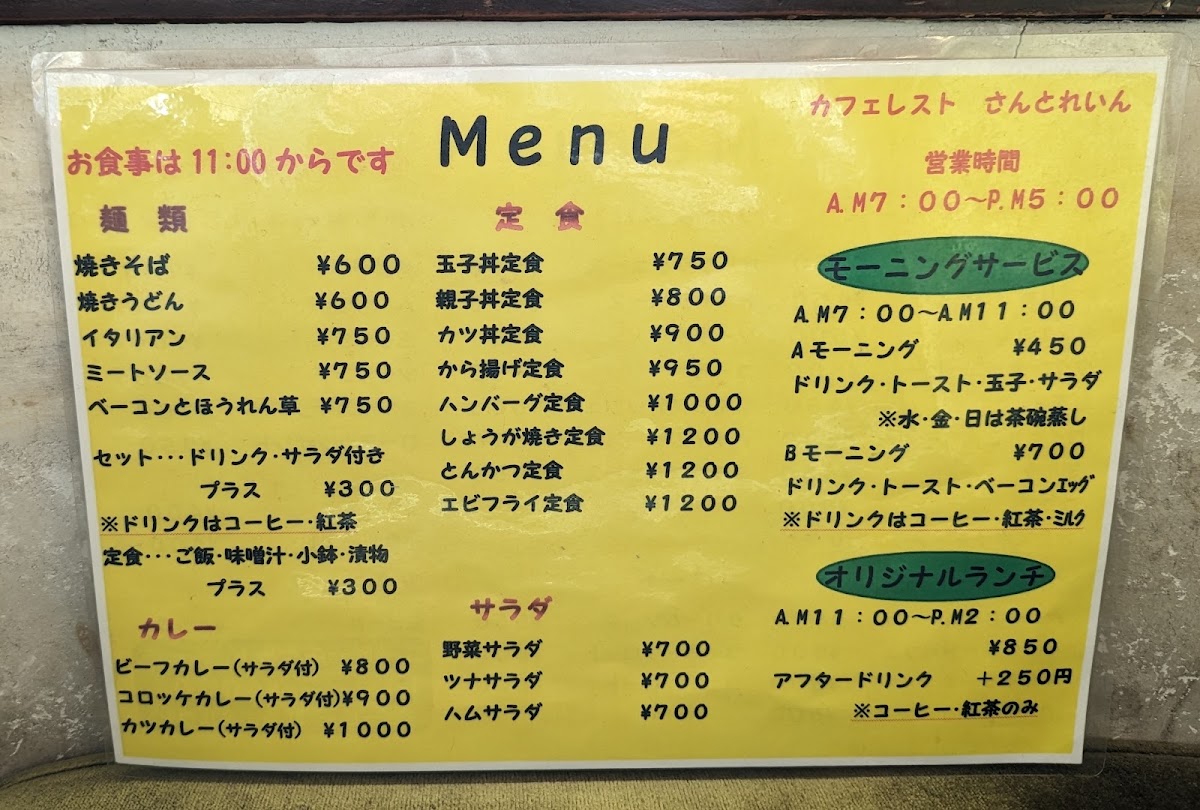 Menu
お食事は11:00からです
麺 類
焼きそば ¥600
焼きうどん ¥600
イタリアン ¥750
ミートソース ¥750
ベーコンとほうれん草 ¥750
セット･･･ドリンク･サラダ付き
プラス ¥300
※ドリンクはコーヒー･紅茶
定食･･･ご飯･味噌汁･小鉢･漬物
プラス ¥300
カレー
ビーフカレー(サラダ付) ¥800
コロッケカレー(サラダ付)¥900
カツカレー(サラダ付) ¥1000
定 食
玉子丼定食 ¥750
親子丼定食 ¥800
カツ丼定食 ¥900
から揚げ定食 ¥950
ハンバーグ定食 ¥1000
しょうが焼き定食 ¥1200
とんかつ定食 ¥1200
エビフライ定食 ¥1200
サラダ
野菜サラダ ¥700
ツナサラダ ¥700
ハムサラダ ¥700
カフェレスト さんとれいん
営業時間
A.M7：00～P.M5：00
モーニングサービス
A.M7：00～A.M11：00
Aモーニング ¥450
ドリンク･トースト･玉子･サラダ
※水･金･日は茶碗蒸し
Bモーニング ¥700
ドリンク･トースト･ベーコンｴｯｸﾞ
※ドリンクはコーヒー･紅茶･ﾐﾙｸ
オリジナルランチ
A.M11：00～P.M2：00
¥850
アフタードリンク ＋250円
※コーヒー･紅茶のみ